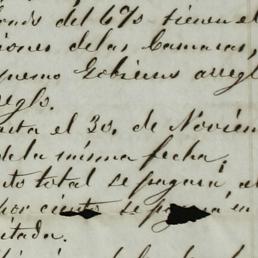 del 6% tienen el
iones de las Camaras,
premo Gobierno arregl
reglo.
asta el 30. de Noviem
de la misma fecha.
nto total se pagará, el
por ciento se pagará en
etada.